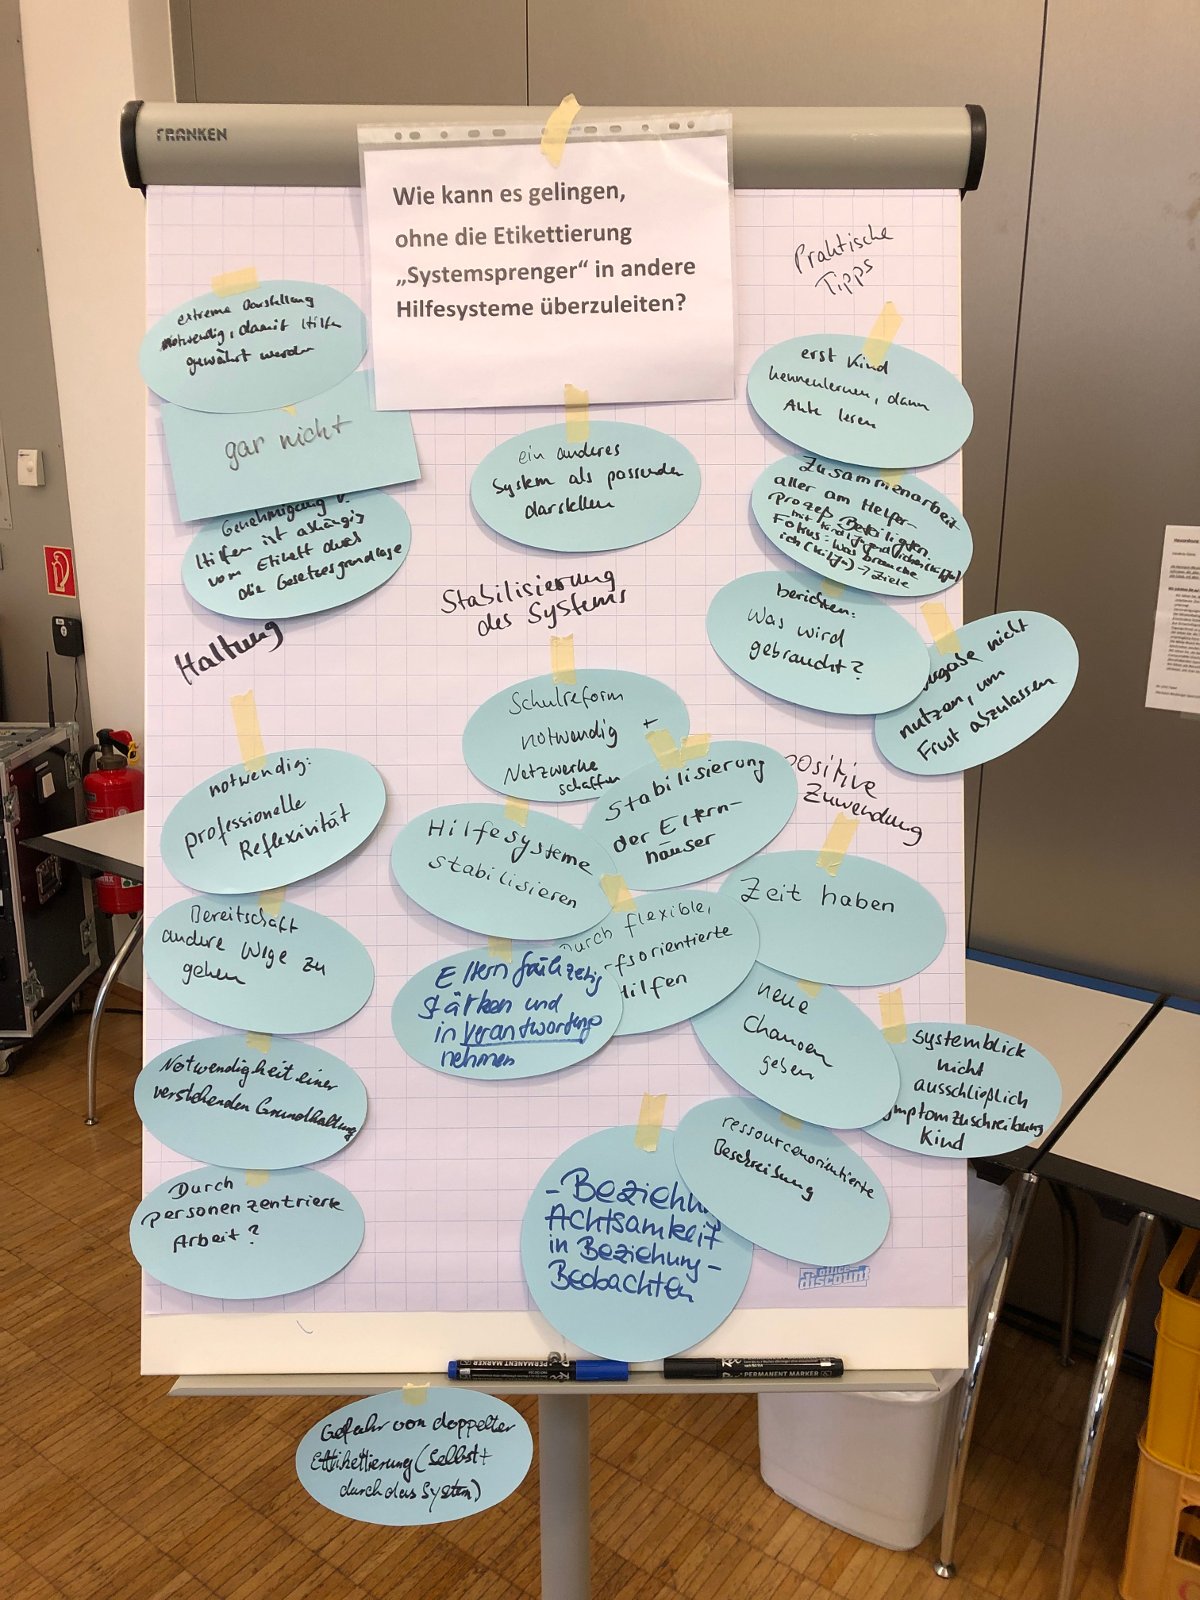 FRANKEN
Wie kann es gelingen,
ohne die Etikettierung
„Systemsprenger“ in andere
Hilfesysteme überzuleiten?
extreme Darstellung
notwendig, damit Hilfen
gewährt werden
gar nicht
Genehmigung v.
Hilfen ist abhängig
vom Etikett durch
die Gesetzesgrundlage
Haltung
notwendig:
professionelle
Reflexivität
Bereitschaft
andere Wege zu
gehen
Notwendigkeit einer
verstehenden Grundhaltung
Durch
personenzentrierte
Arbeit?
ein anderes
System als passender
darstellen
Stabilisierung
des Systems
Schulreform
notwendig +
Netzwerke
schaffen
Stabilisierung
der Eltern-
häuser
Hilfesysteme
stabilisieren
Durch flexible,
fsorientierte
Hilfen
Elternfähigkeit
stärken und
in Verantwortung
nehmen
Praktische
Tipps
erst Kind
kennenlernen, dann
Akte lesen
Zusammenarbeit
aller am Helfer-
prozeß Beteiligten
mit Kind/Jugendlichen (Ki/Ju)
Fokus: Was brauche
ich (Ki/Ju) → Ziele
berichten:
Was wird
gebraucht?
nicht
nutzen, um
Frust abzulassen
positive
Zuwendung
Zeit haben
neue
Chancen
geben
systemblick
nicht
ausschließlich
mptomzuschreibung
Kind
ressourcenorientierte
Beschreibung
- Beziehu
Achtsamkeit
in Beziehung -
Beobachten
office
discount
PERMANENT MARKER
PERMANENT MARKER
Gefahr von doppelter
Ettikettierung (Selbst +
durch das System)